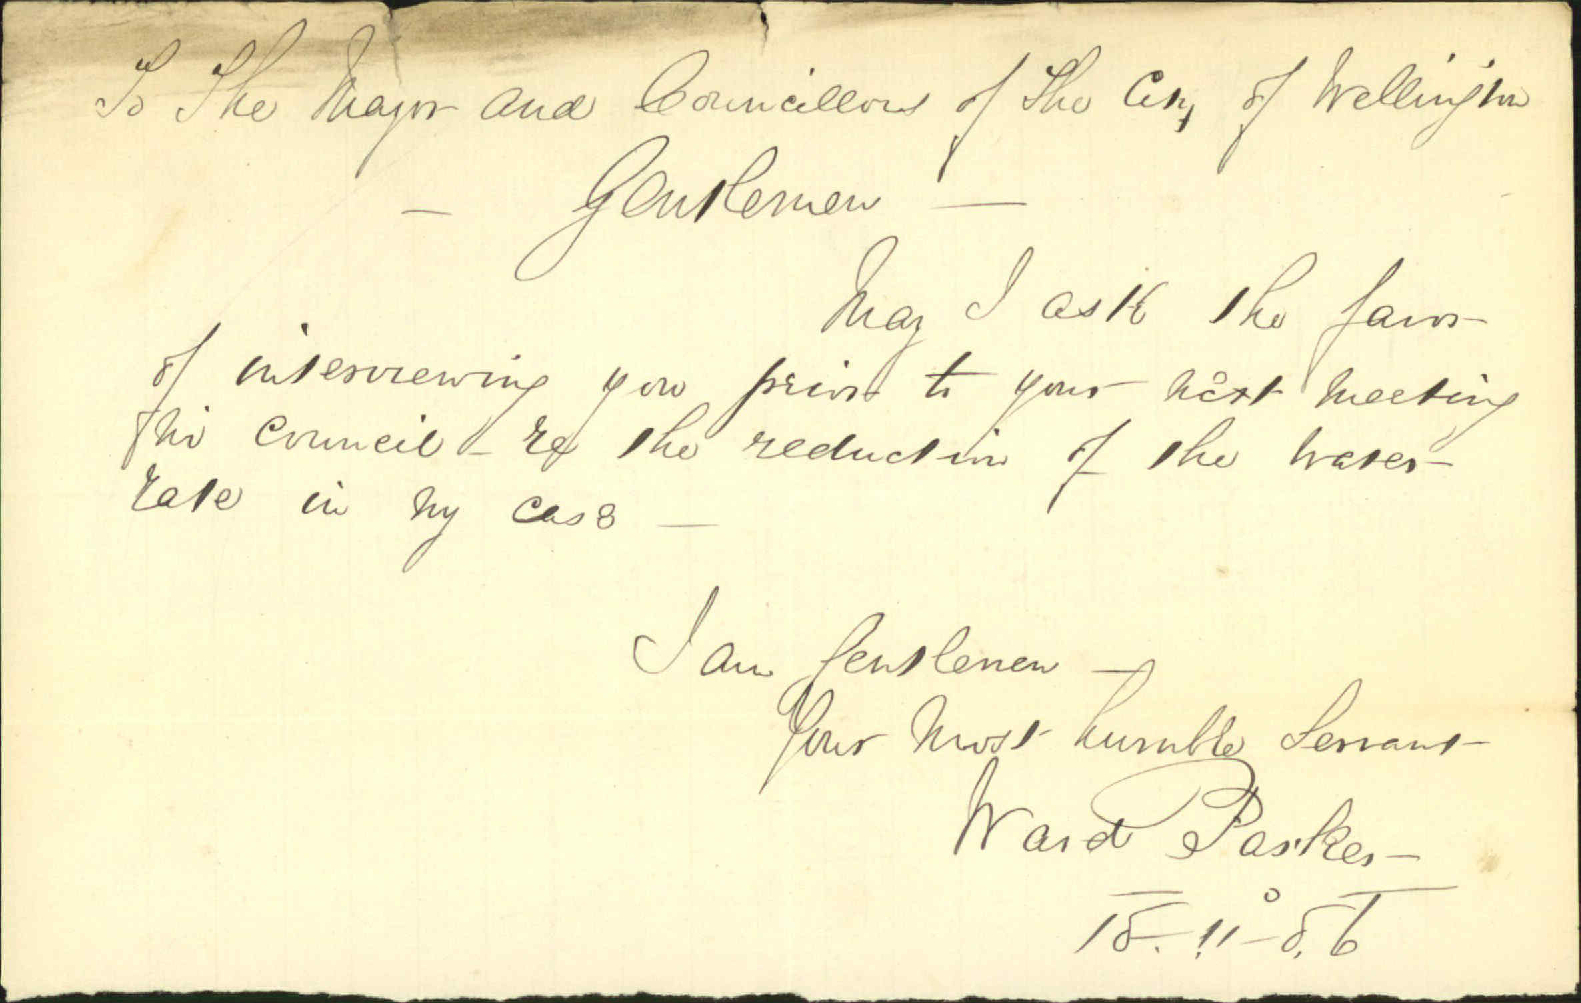 To The Mayor and Councillors of The City of Wellington
— Gentlemen —
May I ask the favor
of interviewing you prior to your next meeting
in council – re the reduction of the water
rate in my case —
I am Gentlemen —
Your Most humble Servant
Ward Parker
18. 11 – 86